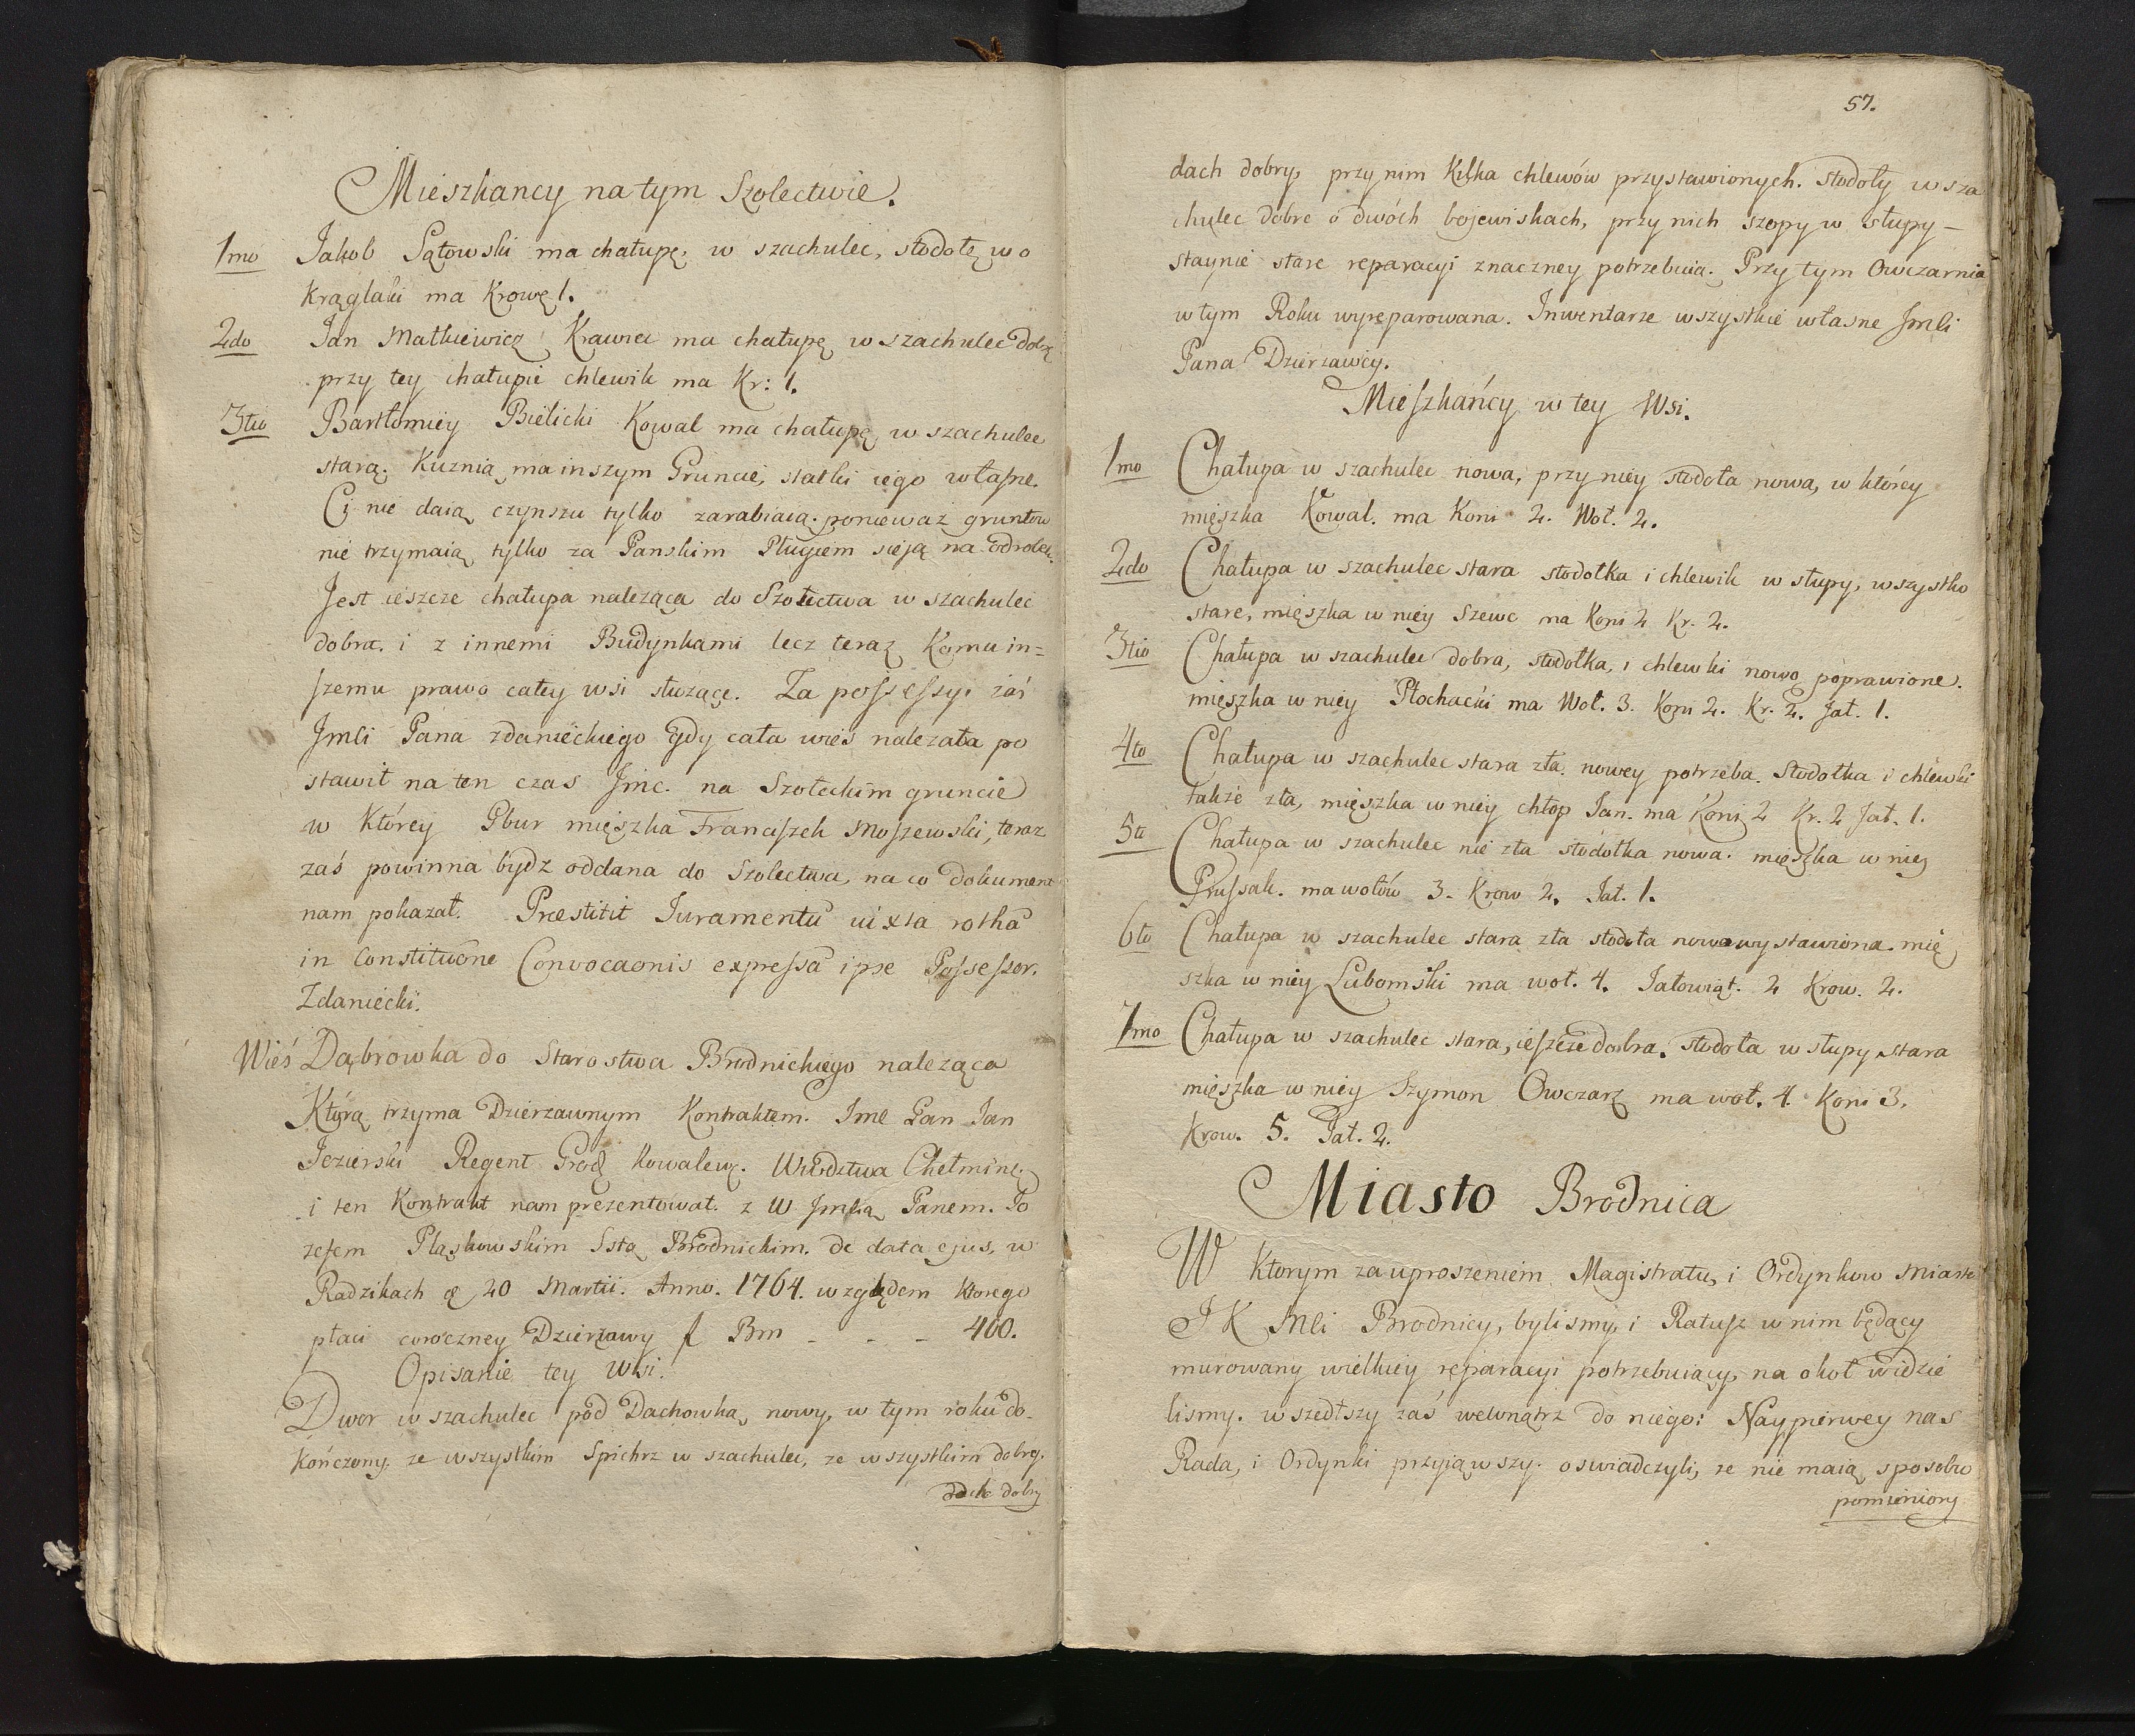 Mieszkancy na tym Szolectwie.
1mo Jakob Sątowski ma chałupę w szachulec, stodołę w o
krąglaki ma Krowę 1.
2do Jan Matkiewicz Krawiec ma chałupę w szachulec dobrą
przy tey chałupie chlewik ma Kr: 1.
3tio Bartłomiey Bielicki Kowal ma chałupę w szachulec
starą. Kuznią ma inszym Gruncie, statki iego własne.
Ci nie daią czynszu tylko zarabiaią. ponieważ gruntow
nie trzymaią, tylko za Panskim Pługiem sieją na odrobek.
Jest ieszcze chałupa naleząca do Szołectwa w szachulec
dobra. i z innemi Budynkami lecz teraz Komu in=
szemu prawo całey wsi słuzące. Za possessyi zaś
Jmći Pana Zdanieckiego gdy cała wieś nalezała po
stawił na ten czas Jmć. na Szołeckim gruncie
w Którey Gbur mięszka Franciszek Moszewski, teraz
zaś powinna bydz oddana do Szolectwa, na co dokument
nam pokazał. Præstitit Juramentū iuxta rothā
in Constituōne Convocaōnis expressā ipse Possessor.
Zdaniecki.
Wieś Dąbrowka do Starostwa Brodnickiego naleząca
Którą trzyma Dzierzawnym Kontraktem. Jmć Pan Jan
Jezierski Regent Grodz Kowalew. Wwództwa Chełminę.
i ten Kontrakt nam prezentował. z W Jmćią Panem. Jo
zefem Pląskowskim Sstą Brodnickim. de data ejus, w
Radzikach d. 20 Martii. Anno. 1764. względem Ktorego
płaci coroczney Dzierzawy f Bm - - - 400.
Opisanie tey Wsi.
Dwor w szachulec pod Dachowką nowy, w tym roku do-
kończony. ze wszystkim Spichrz w szachulec, ze wszystkim dobry.
dach dobry
57.
dach dobry, przy nim Kilka chlewów przystawionych. Stodoły w sza
chulec dobre o dwóch bojewiskach, przy nich szopy w słupy -
staynie stare reparacyi znaczney potrzebuią. Przy tym Owczarnia
w tym Roku wyreparowana. Inwentarze wszystkie własne Jmći
Pana Dzierzawcy.
Mieszkańcy w tey Wsi.
1mo Chałupa w szachulec nowa, przy niey stodoła nowa, w którey
mięszka Kowal. ma Koni 2. Woł. 2.
2do Chałupa w szachulec stara stodołka i chlewik w słupy, wszystko
stare, mięszka w niey Szewc ma Koni 2 Kr. 2.
3tio Chałupa w szachulec dobra, stodołka, i chlewki nowo poprawione.
mięszka w niey Płochacki ma Woł. 3. Koni 2. Kr. 2. Jał. 1.
4to Chałupa w szachulec stara zła. nowey potrzeba. Stodołka i chlewki
także zła, mięszka w niey chłop Jan. ma Koni 2 Kr. 2 Jał. 1.
5to Chałupa w szachulec nie zła stodołka nowa. mięszka w niey
Prussak. ma wołów 3. Krow 2. Jał. 1.
6to Chałupa w szachulec stara zła stodoła nowa wystawiona. mię
szka w niey Lubomski ma woł. 4. Jałowiąt. 2 Krow. 2.
7mo Chałupa w szachulec stara, ieszcze dobra. stodoła w słupy stara
mięszka w niey Szymon Owczarz ma woł. 4. Koni 3.
Krow. 5. Jał. 2.
Miasto Brodnica
W Ktorym za uproszeniem Magistratu, i Ordynkow Miasta
J K Mći Brodnicy, bylismy, i Ratusz w nim będący
murowany wielkiey reparacyi potrzebuiący, na okoł widzie
lismy. wszedłszy zaś wewnątrz do niego: Naypierwey nas
Rada, i Ordynki przyiąwszy. oswiadczyli, ze nie maią sposobu
pomieniony